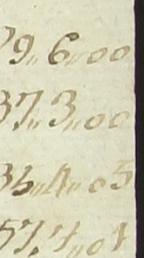 79,,6,,00
37,,3,,00
35,,4,,05
57,,4,,01